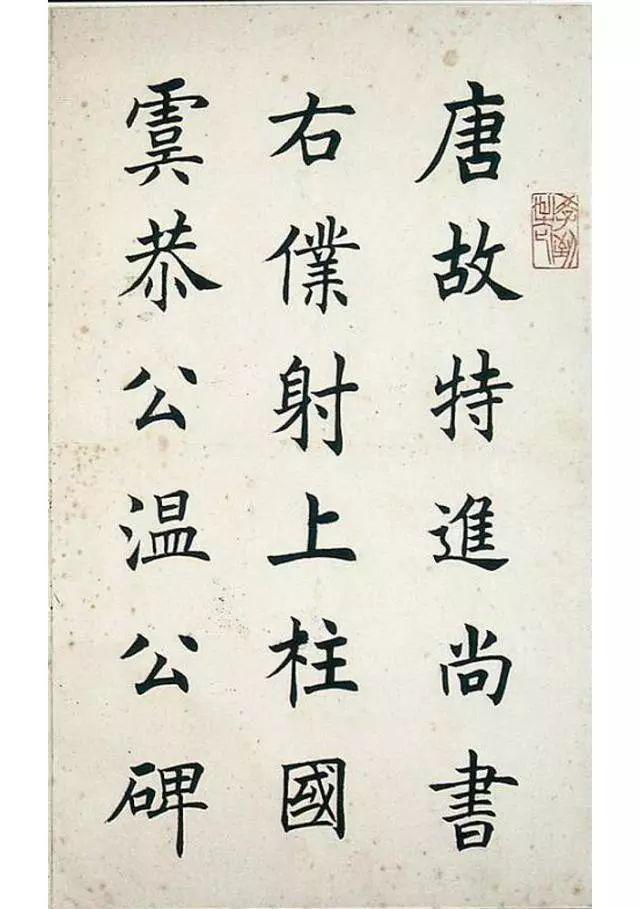 唐故特進尚書
右僕射上柱國
虞恭公温公碑